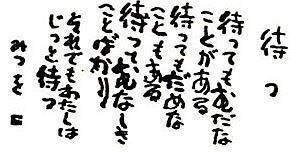 待つ
待ってもむだな
ことがある
待ってもだめな
こともある
待ってむなしき
ことばかり
それでもわたしは
じっと待つ
みつを